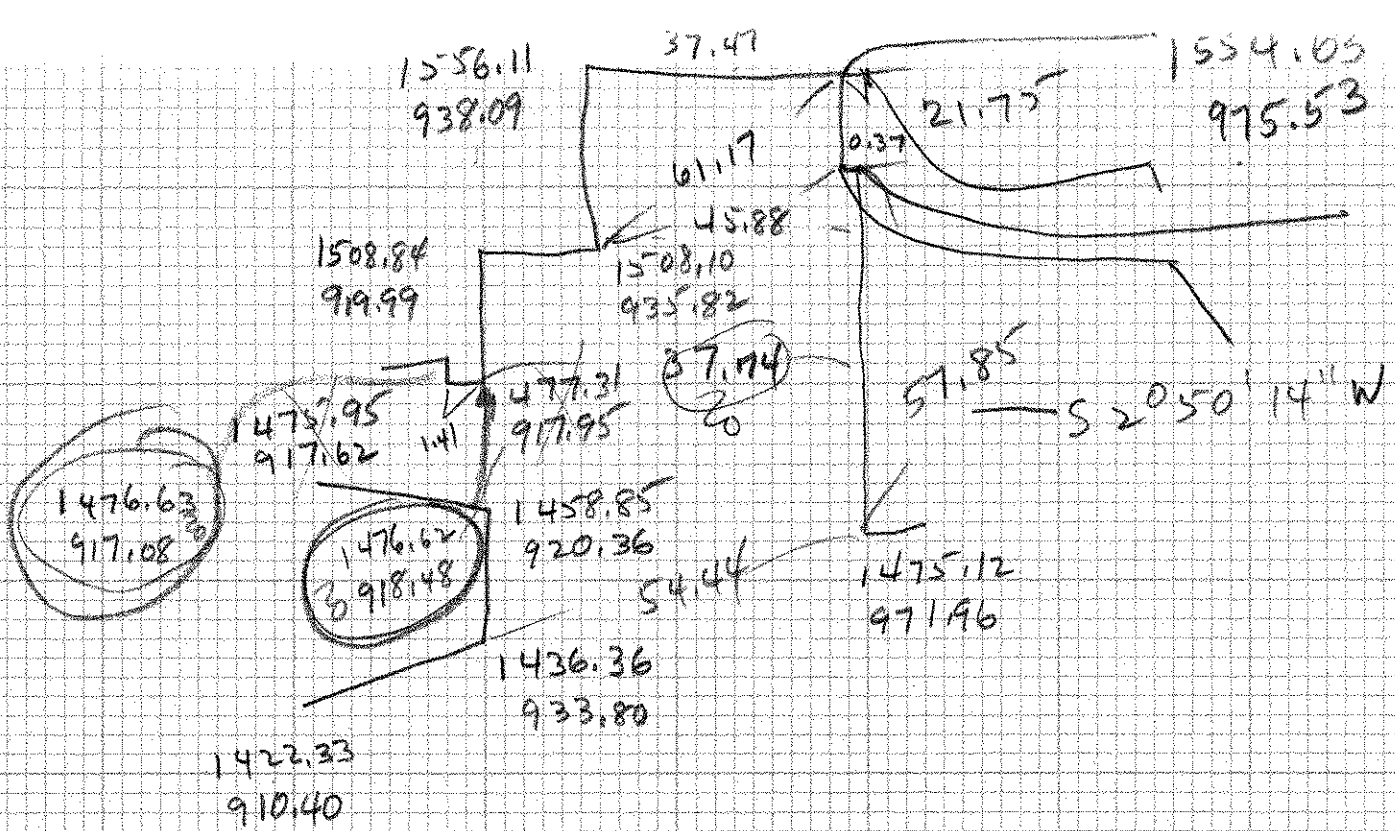 37.47
1556.11
938.09
1554.05
975.53
21.75
0.37
61.17
45.88
1508.84
919.99
1508.10
935.82
37.74
20
57.85
S 2°50'14" W
1477.31
917.95
1475.95
917.62
1.41
1476.63
917.08
20
1476.62
918.48
20
1458.85
920.36
54.44
1475.12
971.96
1436.36
933.80
1422.33
910.40